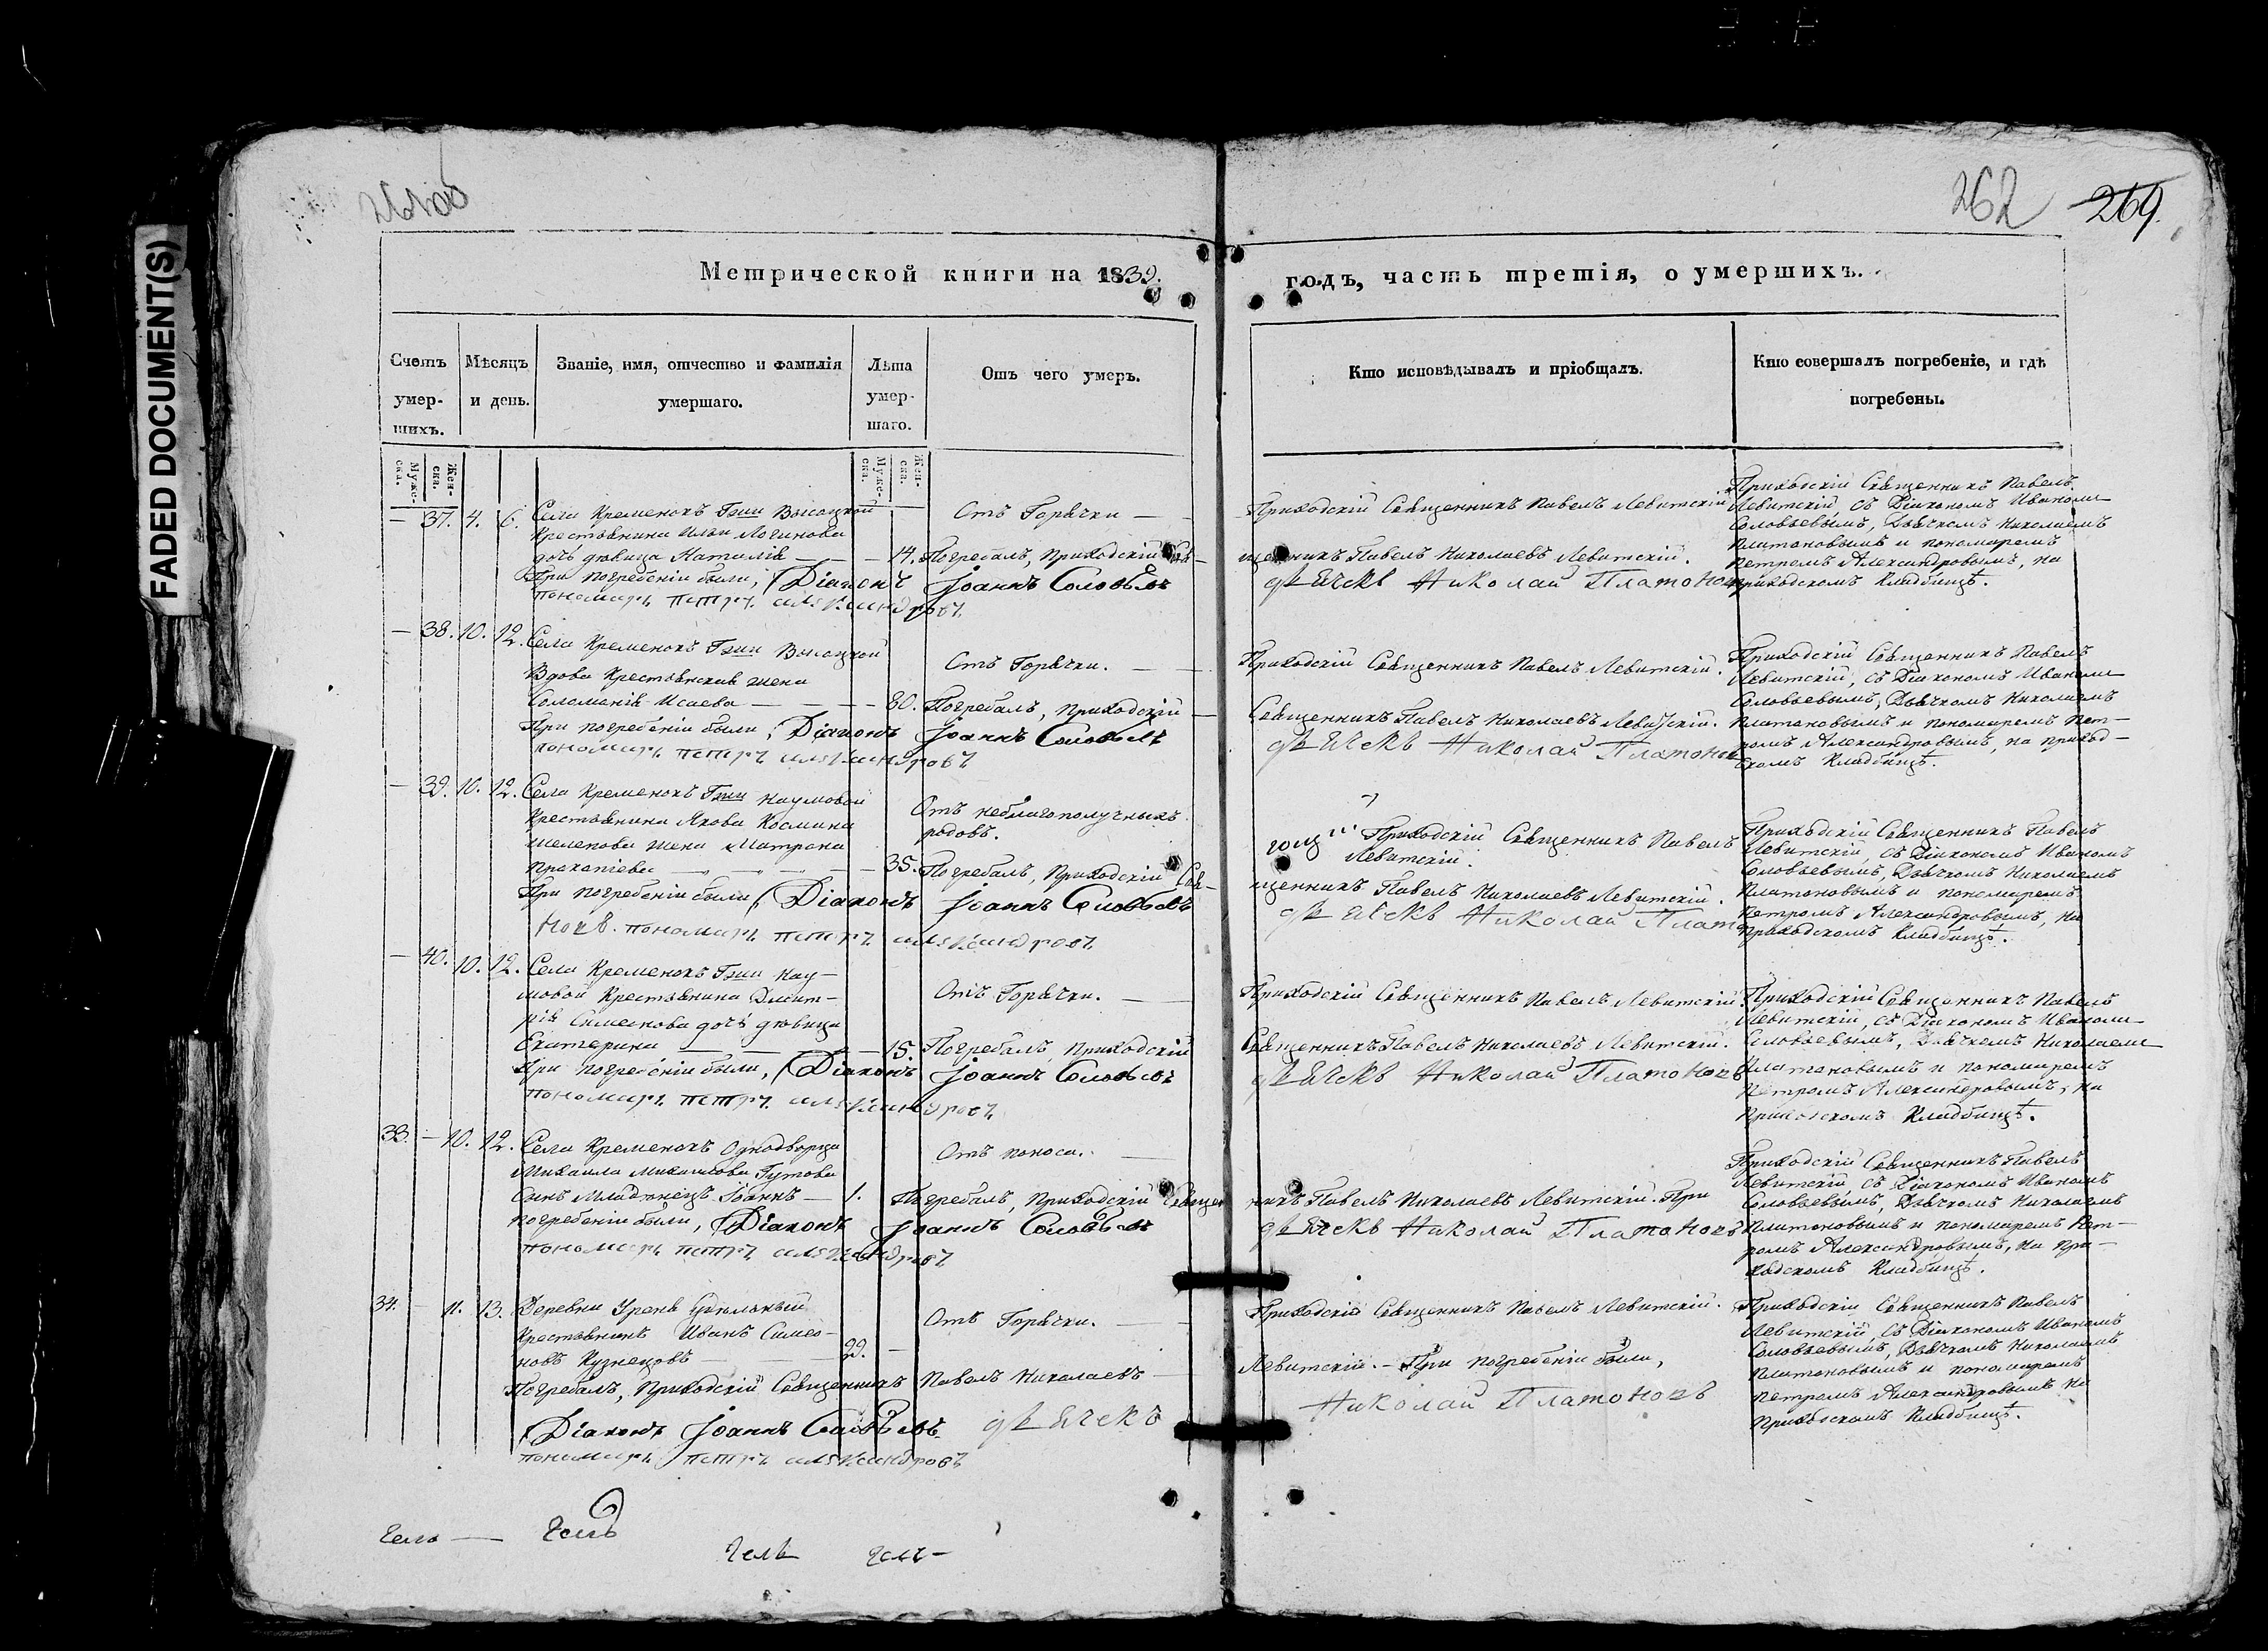 FADED DOCUMENT(S)
262
269.
Метрической книги на 1839. годъ, часть третія, о умершихъ.
Счетъ умер-шихъ.
Мѣсяцъ и день.
Званіе, имя, отчество и фамилія умершаго.
Лѣта умер-шаго.
Отъ чего умеръ.
Кто исповѣдывалъ и пріобщалъ.
Кто совершалъ погребеніе, и гдѣ погребены.
Мужес-ка.
Жен-ска.
Мужес-ка.
Жен-ска.
— 37. 4. 6. Села Кременокъ Гжи Высоцкой
Крестьянина Ильи Логинова
дочь дѣвица Наталія — 14.
Отъ Горячки —
Приходскій Священникъ Павелъ Левитскій
Приходскій Священникъ Павелъ
Левитскій, съ Діакономъ Иваномъ
Соловьевымъ, Дьячкомъ Николаемъ
Платоновымъ и пономаремъ
Петромъ Александровымъ, на
приходскомъ Кладбищѣ.
Погребалъ, Приходскій Свя-
щенникъ Павелъ Николаевъ Левитскій.
При погребеніи были, Діаконъ Іоаннъ Соловьевъ
дьячекъ Николай Платоновъ
пономарь петръ александровъ
— 38. 10. 12. Села Кременокъ Гжи Высоцкой
Вдова Крестьянская жена
Соломонія Исаева — 80.
Отъ Горячки. —
Приходскій Священникъ Павелъ Левитскій.
Приходскій Священникъ Павелъ
Левитскій, съ Діакономъ Иваномъ
Соловьевымъ, Дьячкомъ Николаемъ
Платоновымъ и пономаремъ Пет-
ромъ Александровымъ, на приход-
скомъ Кладбищѣ.
Погребалъ, Приходскій —
Священникъ Павелъ Николаевъ Левитскій.
При погребеніи были, Діаконъ Іоаннъ Соловьевъ
дьячекъ Николай Платонов
пономарь петръ александровъ
— 39. 10. 12. Села Кременокъ Гжи Наумовой
Крестьянина Якова Космина
жена Матрона
Прокопіева — 35.
Отъ неблагополучныхъ
родовъ.
Приходскій Священникъ Павелъ
Левитскій.
Приходскій Священникъ Павелъ
Левитскій, съ Діакономъ Иваномъ
Соловьевымъ, Дьячкомъ Николаемъ
Платоновымъ и пономаремъ
Петромъ Александровымъ, на
приходскомъ Кладбищѣ.
Погребалъ, Приходскій Свя-
щенникъ Павелъ Николаевъ Левитскій.
При погребеніи были, Діаконъ Іоаннъ Соловьевъ
дьячекъ Николай Плато
новъ. пономарь петръ александровъ
— 40. 10. 12. Села Кременокъ Гжи Нау-
мовой Крестьянина Дмит-
рія Симеонова дочь дѣвица
Екатерина — 15.
Отъ Горячки. —
Приходскій Священникъ Павелъ Левитскій.
Приходскій Священникъ Павелъ
Левитскій, съ Діакономъ Иваномъ
Соловьевымъ, Дьячкомъ Николаемъ
Платоновымъ и пономаремъ
Петромъ Александровымъ, на
приходскомъ Кладбищѣ.
Погребалъ, Приходскій
Священникъ Павелъ Николаевъ Левитскій.
При погребеніи были, Діаконъ Іоаннъ Соловьевъ
дьячекъ Николай Платоновъ
пономарь петръ александровъ
33. — 10. 12. Села Кременокъ Однодворца
Михаила Гутова
сынъ младенецъ Іоаннъ — 1.
Отъ поноса. —
Приходскій Священникъ Павелъ
Левитскій, съ Діакономъ Иваномъ
Соловьевымъ, Дьячкомъ Николаемъ
Платоновымъ и пономаремъ Пет-
ромъ Александровымъ, на при-
ходскомъ Кладбищѣ.
Погребалъ, Приходскій Священ
никъ Павелъ Николаевъ Левитскій. При
погребеніи были, Діаконъ Іоаннъ Соловьевъ
дьячекъ Николай Платоновъ
пономарь петръ александровъ
34. — 11. 13. Деревни Урень Удѣльный
Крестьянинъ Иванъ Симео-
новъ Кузнецовъ — 22. —
Отъ Горячки. —
Приходскій Священникъ Павелъ Левитскій.
Приходскій Священникъ Павелъ
Левитскій, съ Діакономъ Иваномъ
Соловьевымъ, Дьячкомъ Николаемъ
Платоновымъ и пономаремъ
Петромъ Александровымъ на
приходскомъ Кладбищѣ.
Погребалъ, Приходскій Священникъ Павелъ Николаевъ
Левитскій. — При погребеніи были,
Діаконъ Іоаннъ Соловьевъ. дьячекъ
Николай Платоновъ
пономарь петръ александровъ